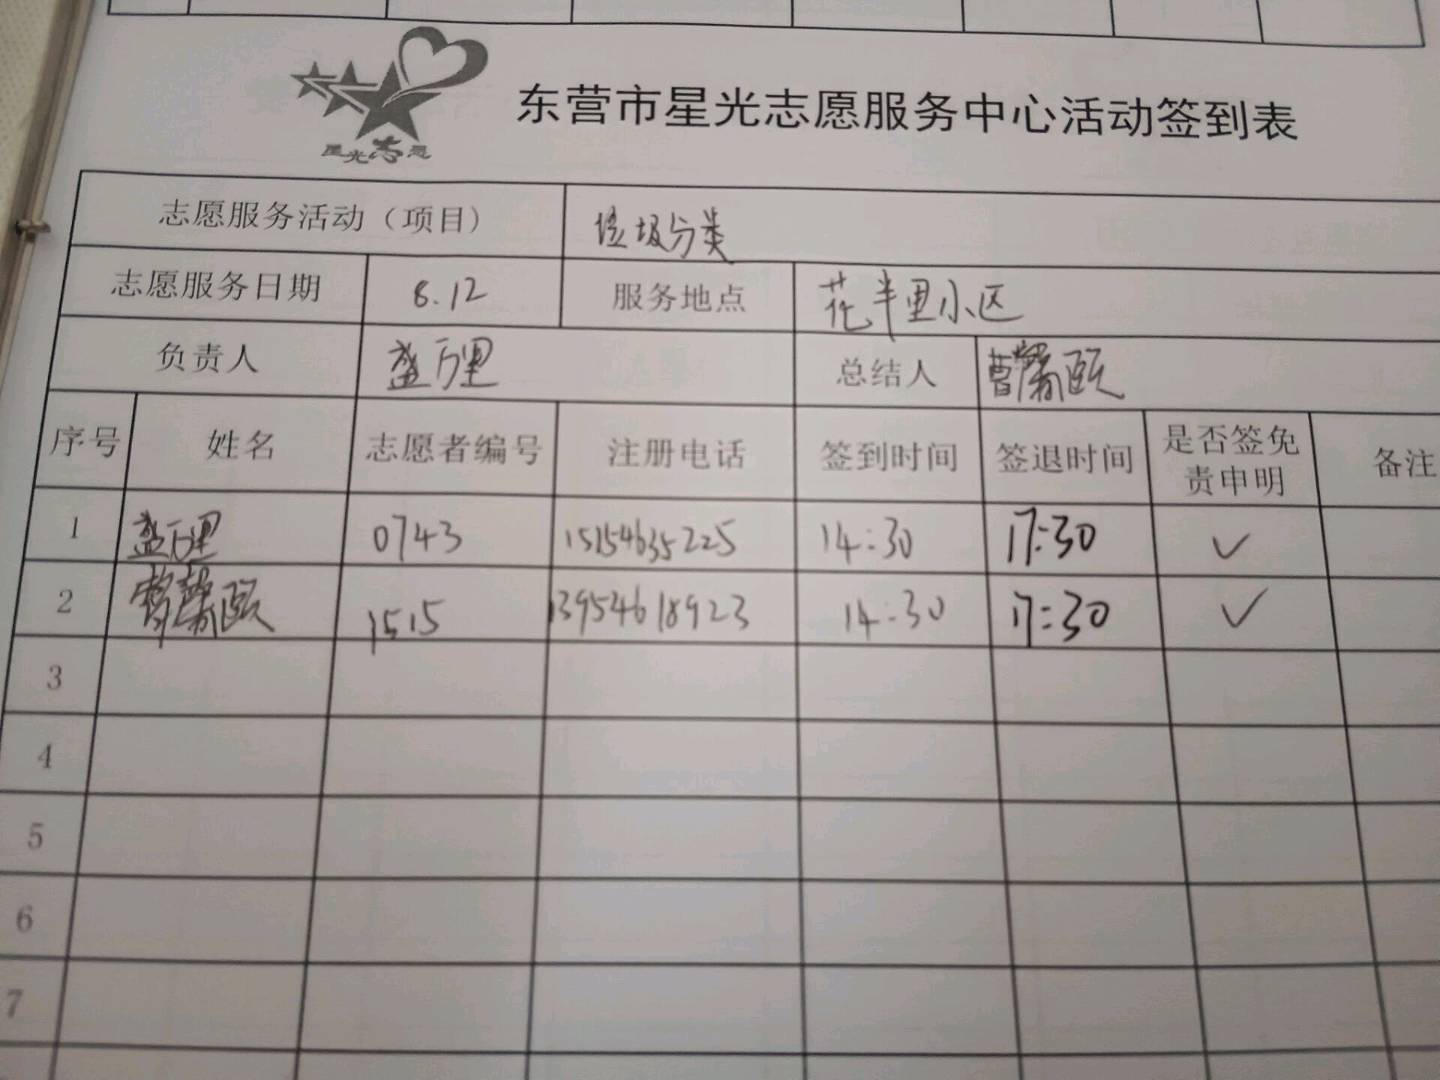 星光志愿
东营市星光志愿服务中心活动签到表
志愿服务活动（项目） 垃圾分类
志愿服务日期 8.12 服务地点 花半里小区
负责人 盛万里 总结人 曹馨颐
序号 姓名 志愿者编号 注册电话 签到时间 签退时间 是否签免责申明 备注
1 盛万里 0743 15154635225 14:30 17:30 ✓
2 曹馨颐 1515 13954618923 14:30 17:30 ✓
3
4
5
6
7